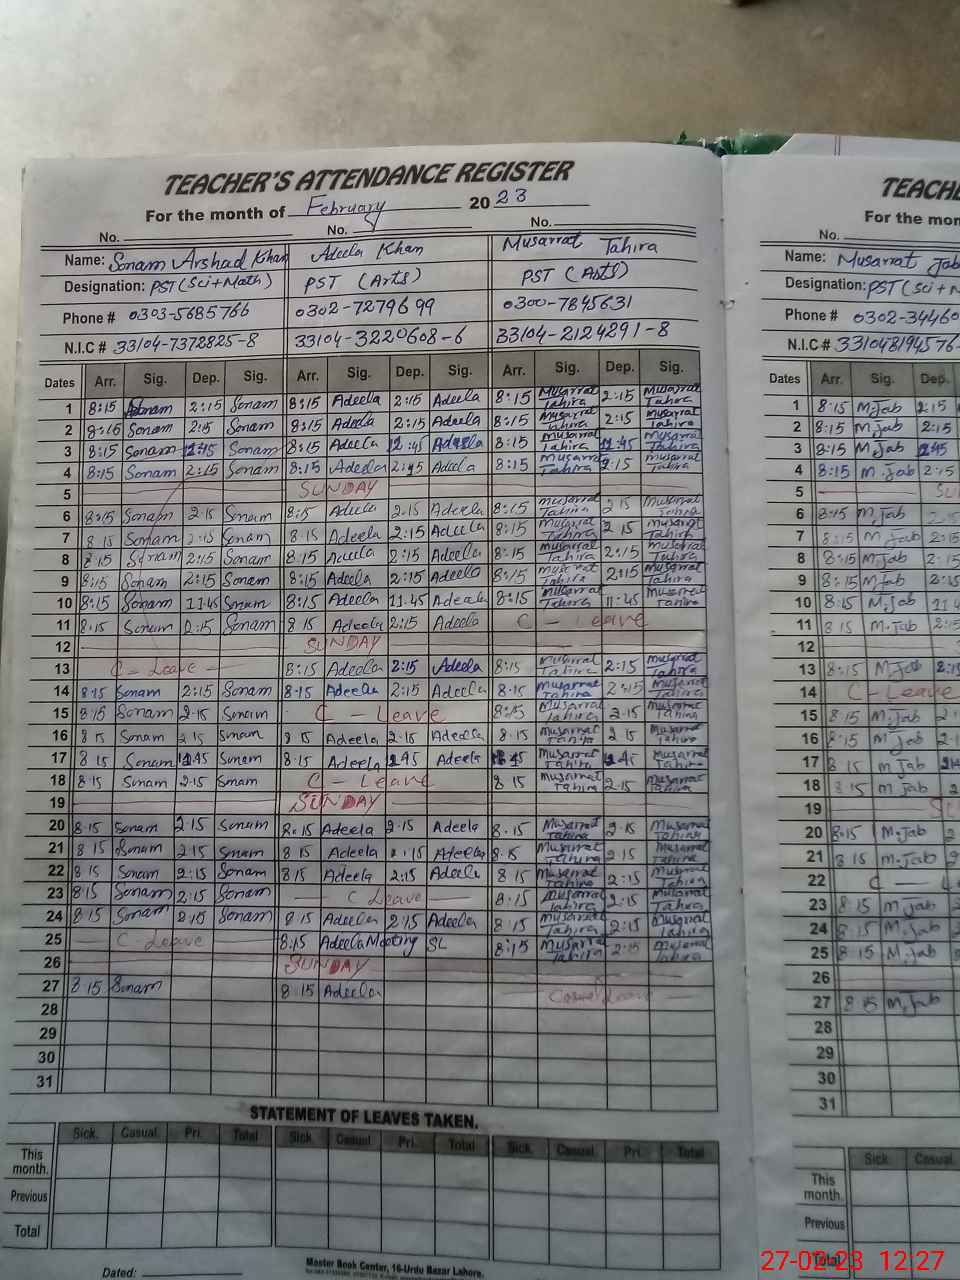 TEACHER'S ATTENDANCE REGISTER
For the month of February 2023
No. No. No.
Name: Sonam Arshad Khan Adeela Khan Musarrat Tahira
Designation: PST (Sci+Math) PST (Arts) PST (Arts)
Phone # 0303-5685766 0302-7279699 0300-7845631
N.I.C # 33104-7372825-8 33104-3220608-6 33104-2124291-8
Dates Arr. Sig. Dep. Sig. Arr. Sig. Dep. Sig. Arr. Sig. Dep. Sig.
1 8:15 Sonam 2:15 Sonam 8:15 Adeela 2:15 Adeela 8:15 Musarrat Tahira 2:15 Musarrat Tahira
2 8:15 Sonam 2:15 Sonam 8:15 Adeela 2:15 Adeela 8:15 Musarrat Tahira 2:15 Musarrat Tahira
3 8:15 Sonam 12:45 Sonam 8:15 Adeela 12:45 Adeela 8:15 Musarrat Tahira 12:45 Musarrat Tahira
4 8:15 Sonam 2:15 Sonam 8:15 Adeela 2:15 Adeela 8:15 Musarrat Tahira 2:15 Musarrat Tahira
5 SUNDAY
6 8:15 Sonam 2:15 Sonam 8:15 Adeela 2:15 Adeela 8:15 Musarrat Tahira 2 15 Musarrat Tahira
7 8 15 Sonam 2:15 Sonam 8:15 Adeela 2:15 Adeela 8:15 Musarrat Tahira 2 15 Musarrat Tahira
8 8:15 Sonam 2:15 Sonam 8:15 Adeela 2:15 Adeela 8:15 Musarrat Tahira 2:15 Musarrat Tahira
9 8:15 Sonam 2:15 Sonam 8:15 Adeela 2:15 Adeela 8:15 Musarrat Tahira 2:15 Musarrat Tahira
10 8:15 Sonam 11:45 Sonam 8:15 Adeela 11:45 Adeela 8:15 Musarrat Tahira 11:45 Musarrat Tahira
11 8:15 Sonam 2:15 Sonam 8 15 Adeela 2:15 Adeela C - Leave
12 SUNDAY
13 C - Leave - 8:15 Adeela 2:15 Adeela 8:15 Musarrat Tahira 2:15 Musarrat Tahira
14 8:15 Sonam 2:15 Sonam 8:15 Adeela 2:15 Adeela 8:15 Musarrat Tahira 2:15 Musarrat Tahira
15 8:15 Sonam 2:15 Sonam C - Leave 8:15 Musarrat Tahira 2:15 Musarrat Tahira
16 8 15 Sonam 2 15 Sonam 8 15 Adeela 2:15 Adeela 8:15 Musarrat Tahira 2 15 Musarrat Tahira
17 8 15 Sonam Sonam 8:15 Adeela Adeela Musarrat Tahira Musarrat Tahira
18 8 15 Sonam 2:15 Sonam C - Leave 8 15 Musarrat Tahira 2:15 Musarrat Tahira
19 SUNDAY
20 8:15 Sonam 2:15 Sonam 8:15 Adeela 2:15 Adeela 8:15 Musarrat Tahira 2:15 Musarrat Tahira
21 8 15 Sonam 2:15 Sonam 8 15 Adeela 2:15 Adeela 8:15 Musarrat Tahira 2:15 Musarrat Tahira
22 8 15 Sonam 2:15 Sonam 8 15 Adeela 2:15 Adeela 8 15 Musarrat Tahira 2:15 Musarrat Tahira
23 8:15 Sonam 2:15 Sonam C Leave 8:15 Musarrat Tahira 2:15 Musarrat Tahira
24 8 15 Sonam 2:15 Sonam 8 15 Adeela 2:15 Adeela 8:15 Musarrat Tahira 2:15 Musarrat Tahira
25 C - Leave 8:15 Adeela Meeting SL 8:15 Musarrat Tahira 2:15 Musarrat Tahira
26 SUNDAY
27 8 15 Sonam 8 15 Adeela Casual Leave
28
29
30
31
STATEMENT OF LEAVES TAKEN.
Sick. Casual. Pri. Total Sick. Casual Pri. Total Sick. Casual. Pri. Total
This month.
Previous
Total
Dated:
Master Book Center, 16-Urdu Bazar Lahore.
TEACHE
For the mon
No.
Name: Musarrat Jab
Designation: PST (Sci+M
Phone # 0302-34460
N.I.C # 3310481945 76-
Dates Arr. Sig. Dep.
1 8:15 M.Jab 2:15
2 8:15 M.Jab 2:15
3 8:15 M.Jab
4 8:15 M.Jab 2:15
5 SU
6 8:15 M.Jab 2:15
7 8:15 M.Jab 2:15
8 8:15 M.Jab 2:15
9 8:15 M.Jab 2:15
10 8:15 M.Jab 11:4
11 8 15 M.Jab 2:15
12
13 8:15 M.Jab 2:15
14 C - Leave
15 8:15 M.Jab
16 8:15 M.Jab
17 8 15 M.Jab
18 8 15 M.Jab 2
19 SU
20 8:15 M.Jab 2
21 8 15 M.Jab 2
22 C -
23 8 15 M.Jab
24 8 15 M.Jab
25 8 15 M.Jab
26
27 8 15 M.Jab
28
29
30
31
Sick. Casual.
This month.
Previous
Total
27-02-23 12:27